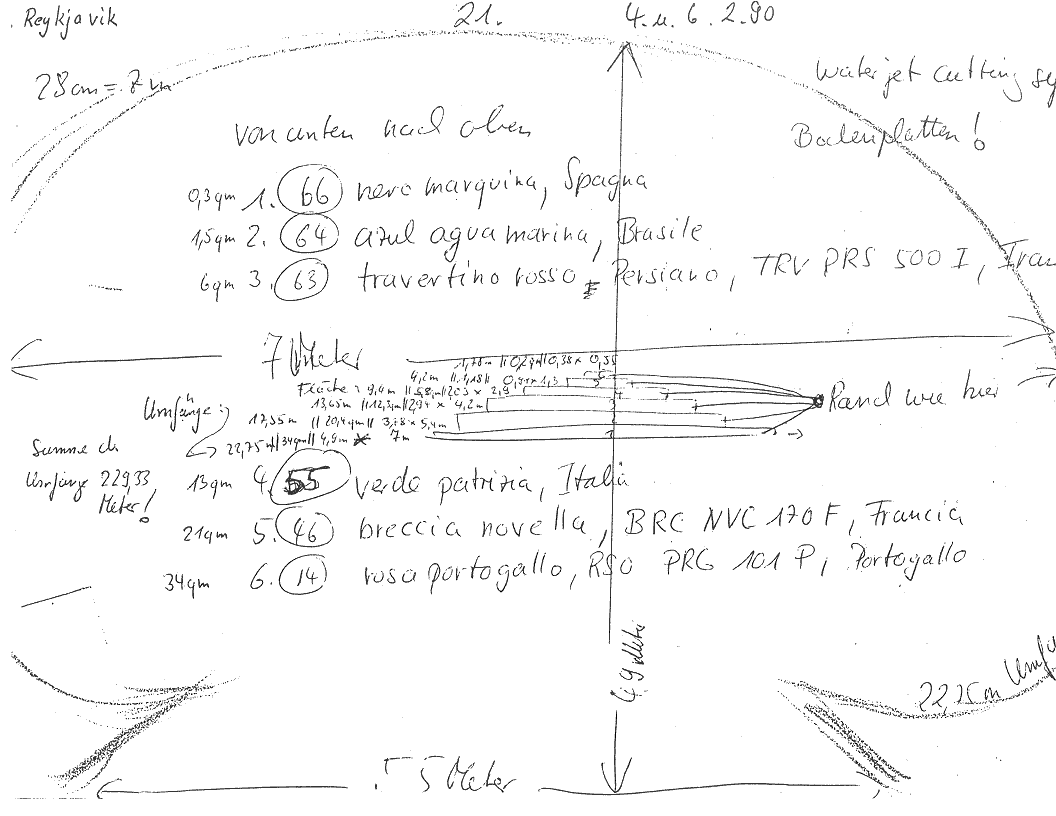 . Reykjavik 21. 4. u. 6. 2. 90
28cm = 7m
waterjet cutting
Bodenplatten!
von unten nach oben
0,3qm 1. 66 nero marquina, Spagna
1,5qm 2. 64 azul agua marina, Brasile
6qm 3. 63 travertino rosso Persiano, TRV PRS 500 I, Iran
7 Meter
4,2m
Fläche: 9,4m
Umfänge:
13,65m || 12,3qm || 2,94 x 4,2m
17,55m || 20,4qm || 3,78 x 5,4m
22,75m || 34qm || 4,9m x 7m
Rand wie hier
Summe der
Umfänge 229,33
Meter!
13qm 4. 55 verde patrizia, Italia
21qm 5. 46 breccia novella, BRC NVC 170 F, Francia
34qm 6. 14 rosa portogallo, RSO PRG 101 P, Portogallo
4,9 Meter
22,75m
5 Meter